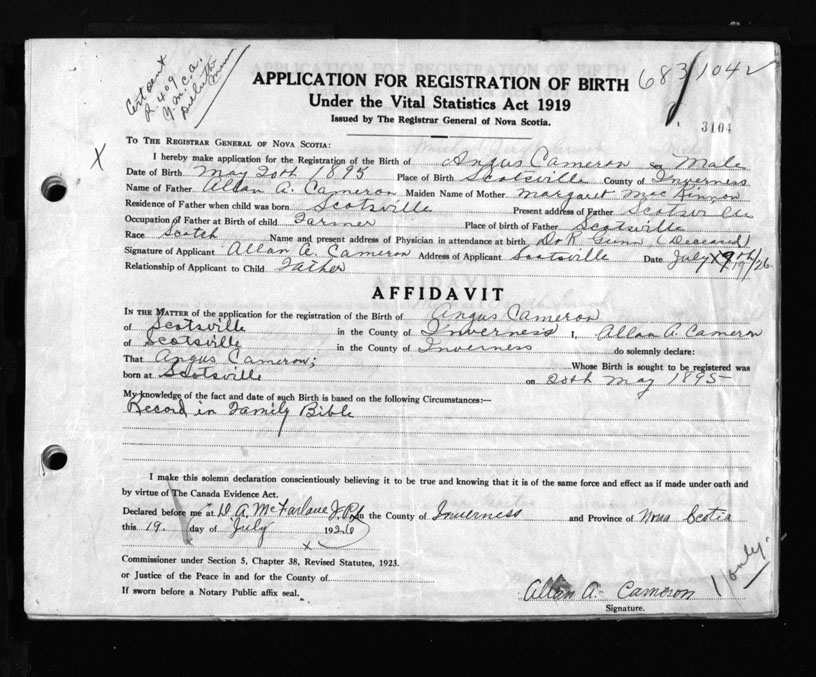 Cert sent
R 409
Y.M.C.A.
Duluth
Minn
683/1042
3104
APPLICATION FOR REGISTRATION OF BIRTH
Under the Vital Statistics Act 1919
Issued by The Registrar General of Nova Scotia.
TO THE REGISTRAR GENERAL OF NOVA SCOTIA:
X
I hereby make application for the Registration of the Birth of Angus Cameron sex Male
Date of Birth May 20th 1895 Place of Birth Scotsville County of Inverness
Name of Father Allan A. Cameron Maiden Name of Mother Margaret MacKinnon
Residence of Father when child was born Scotsville Present address of Father Scotsville
Occupation of Father at Birth of child Farmer Place of birth of Father Scotsville
Race Scotch Name and present address of Physician in attendance at birth Dr R Gunn (Deceased)
Signature of Applicant Allan A. Cameron Address of Applicant Scotsville Date July 19th 19/26
Relationship of Applicant to Child Father
AFFIDAVIT
IN THE MATTER of the application for the registration of the Birth of Angus Cameron
of Scotsville in the County of Inverness I, Allan A. Cameron
of Scotsville in the County of Inverness do solemnly declare:
That Angus Cameron; Whose Birth is sought to be registered was
born at Scotsville on 20th May 1895
My knowledge of the fact and date of such Birth is based on the following Circumstances:—
Record in Family Bible
I make this solemn declaration conscientiously believing it to be true and knowing that it is of the same force and effect as if made under oath and
by virtue of The Canada Evidence Act.
Declared before me at D. A. McFarlane J.P. in the County of Inverness and Province of Nova Scotia
this 19. day of July 1926
x
Commissioner under Section 5, Chapter 38, Revised Statutes, 1923.
or Justice of the Peace in and for the County of
If sworn before a Notary Public affix seal.
Allan A. Cameron
Signature.
1 only.